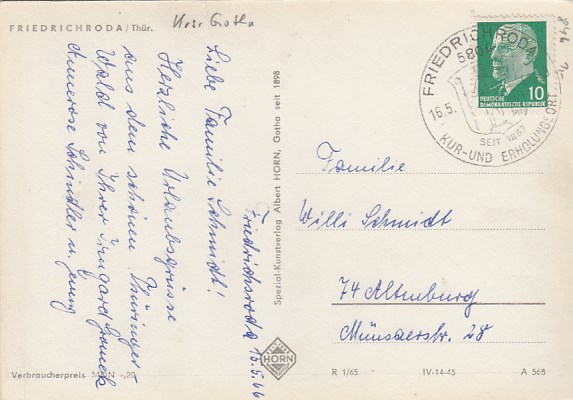 FRIEDRICHRODA/Thür.
Krs. Gotha
Friedrichroda 16.5.66
Liebe Familie Schmidt!
Herzliche Urlaubsgrüsse
aus dem schönen Thüringer-
Wald von Ihrer Irmgard
Annerose Schindler u.
Verbraucherpreis MDN -,20
Spezial-Kunstverlag Albert HORN, Gotha seit 1898
HORN
FRIEDRICHRODA
16.5.
SEIT 1837
KUR-UND ERHOLUNGSORT
10
DEUTSCHE
DEMOKRATISCHE REPUBLIK
Familie
Willi Schmidt
74 Altenburg
Münsaerstr. 28
R 1/65 IV-14-45 A 568